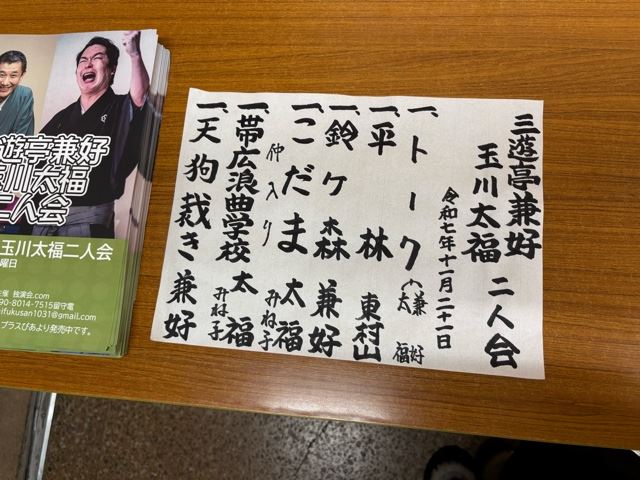 三遊亭兼好
玉川太福 二人会
令和七年十一月二十一日
一、トーク(兼好 太福
一、平林 東村山
一、鈴ヶ森 兼好
一、こだま 太福 みね子
仲入り
一、帯広浪曲学校 太福 みね子
一、天狗裁き 兼好
遊亭兼好
玉川太福
二人会
玉川太福二人会
曜日
主催 独演会.com
90-8014-7515留守電
ifukusan1031@gmail.com
プラスぴあより発売中です。